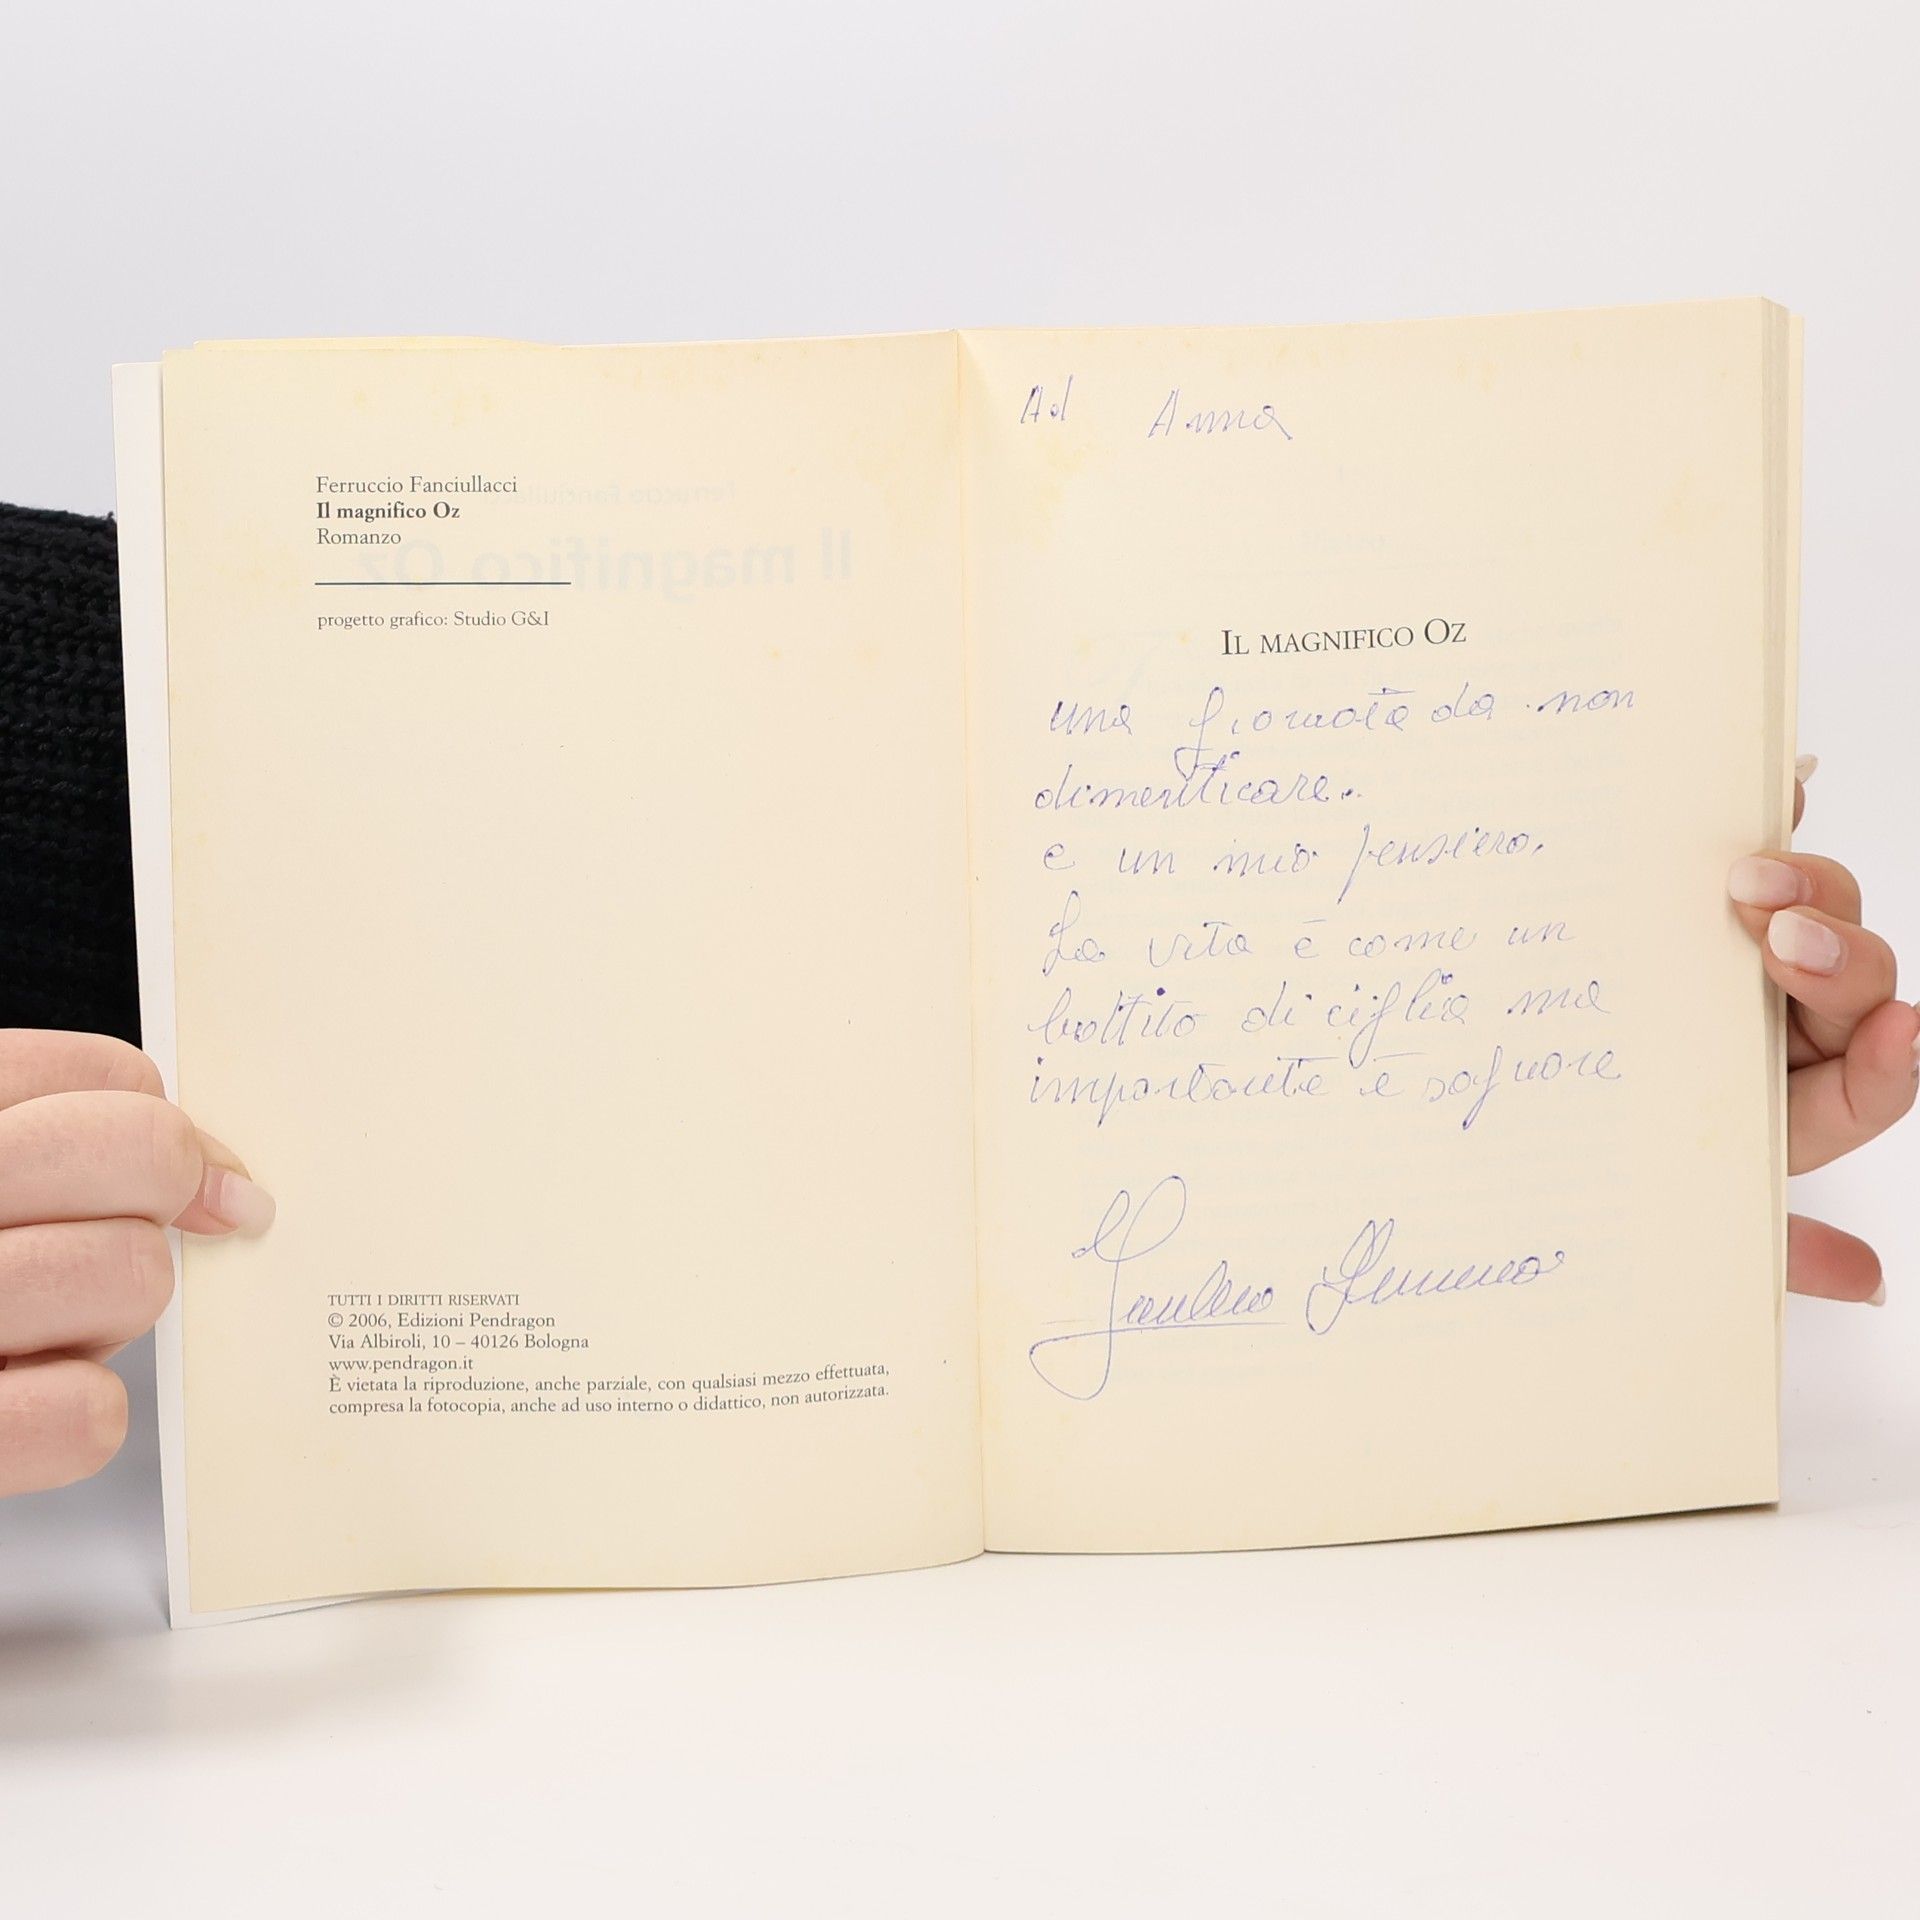 Ferruccio Fanciullacci
Il magnifico Oz
Romanzo
progetto grafico: Studio G&I
TUTTI I DIRITTI RISERVATI
© 2006, Edizioni Pendragon
Via Albiroli, 10 – 40126 Bologna
www.pendragon.it
È vietata la riproduzione, anche parziale, con qualsiasi mezzo effettuata,
compresa la fotocopia, anche ad uso interno o didattico, non autorizzata.
Ad Anna
IL MAGNIFICO OZ
una giornata da non
dimenticare..
e un mio pensiero.
La vita è come un
battito di ciglia ma
importante è sognare